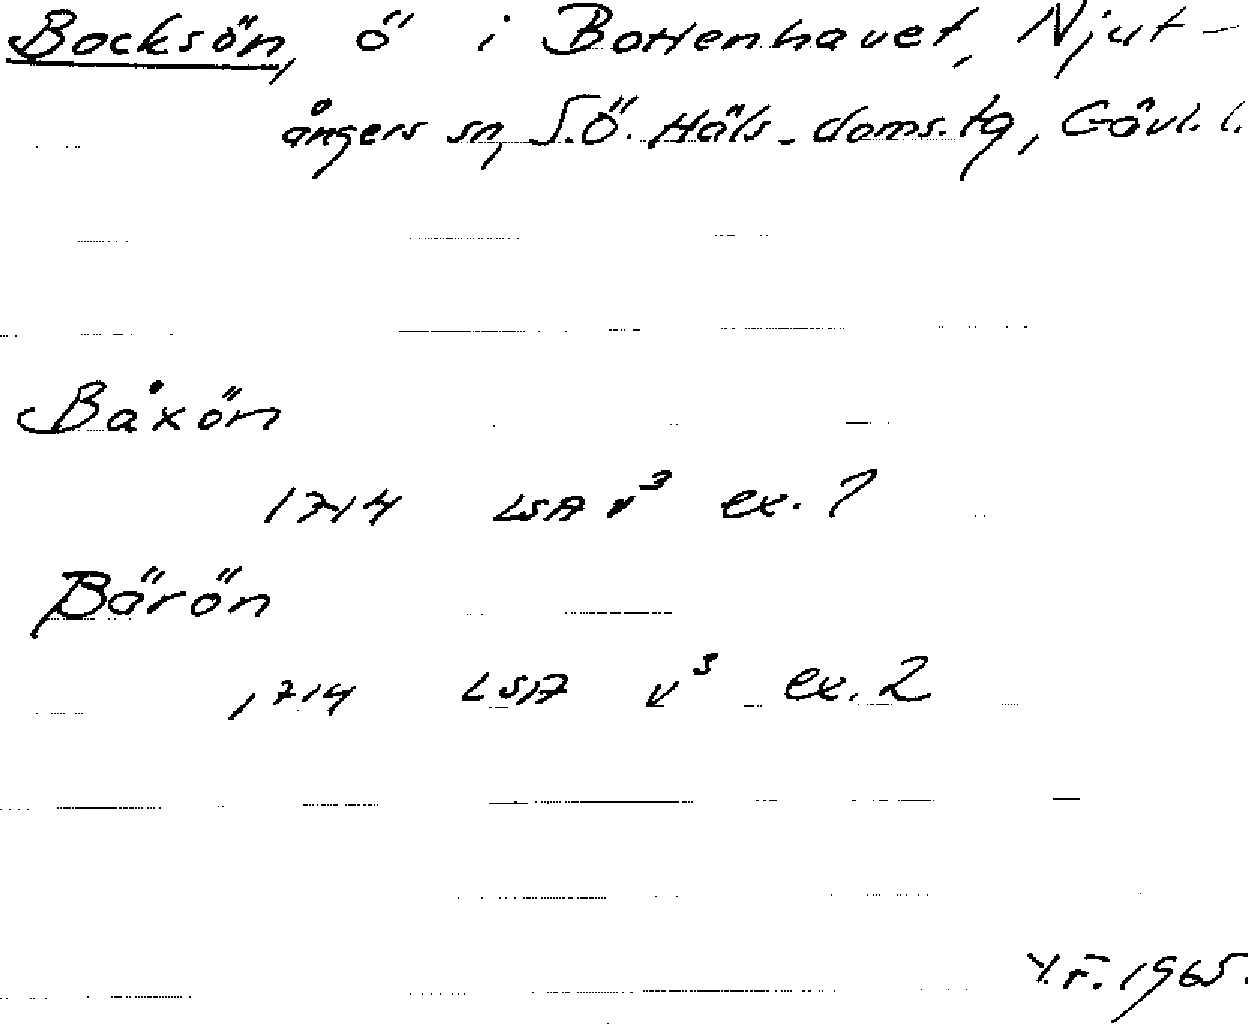 Bocksön, ö i Bottenhavet, Njut-
ångers sn, S.Ö. Häls. doms. tg, Gävl. l.
Båxön
1714 LSA v³ ex. ?
Bärön
1714 LSA v³ ex. 2
Y.F. 1965.